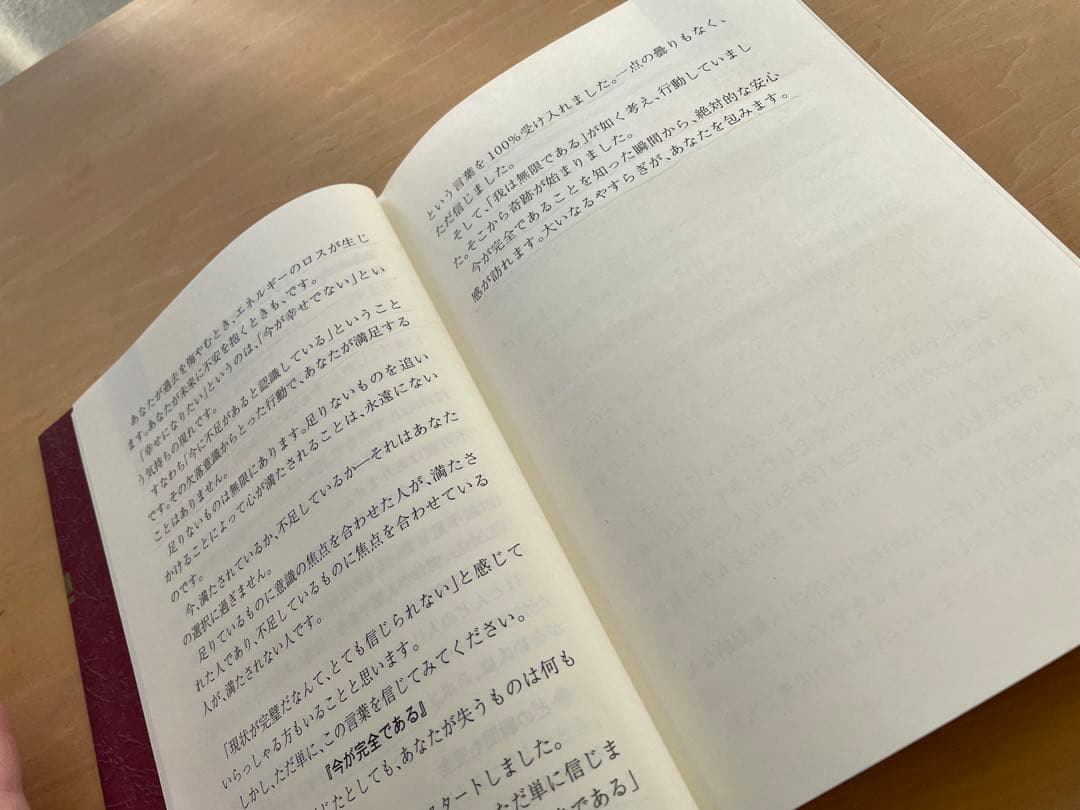 あなたが過去を悔やむとき、エネルギーのロスが生じ
ます。あなたが未来に不安を抱くときも、です。
「幸せになりたい」というのは、「今が幸せでない」とい
う気持ちの現れです。
すなわち「今に不足があると認識している」ということ
です。その欠落意識からとった行動で、あなたが満足する
ことはありません。
足りないものは無限にあります。足りないものを追い
かけることによって心が満たされることは、永遠にない
のです。
今、満たされているか、不足しているか―それはあなた
の選択に過ぎません。
足りているものに意識の焦点を合わせた人が、満たさ
れた人であり、不足しているものに焦点を合わせている
人が、満たされない人です。
「現状が完璧だなんて、とても信じられない」と感じて
いらっしゃる方もいることと思います。
しかし、ただ単に、この言葉を信じてみてください。
『今が完全である』
じたとしても、あなたが失うものは何も
スタートしました。
ただ単に信じま
である」
という言葉を100%受け入れました。一点の曇りもなく、
ただ信じました。
そして、「我は無限である」が如く考え、行動していまし
た。そこから奇跡が始まりました。
今が完全であることを知った瞬間から、絶対的な安心
感が訪れます。大いなるやすらぎが、あなたを包みます。